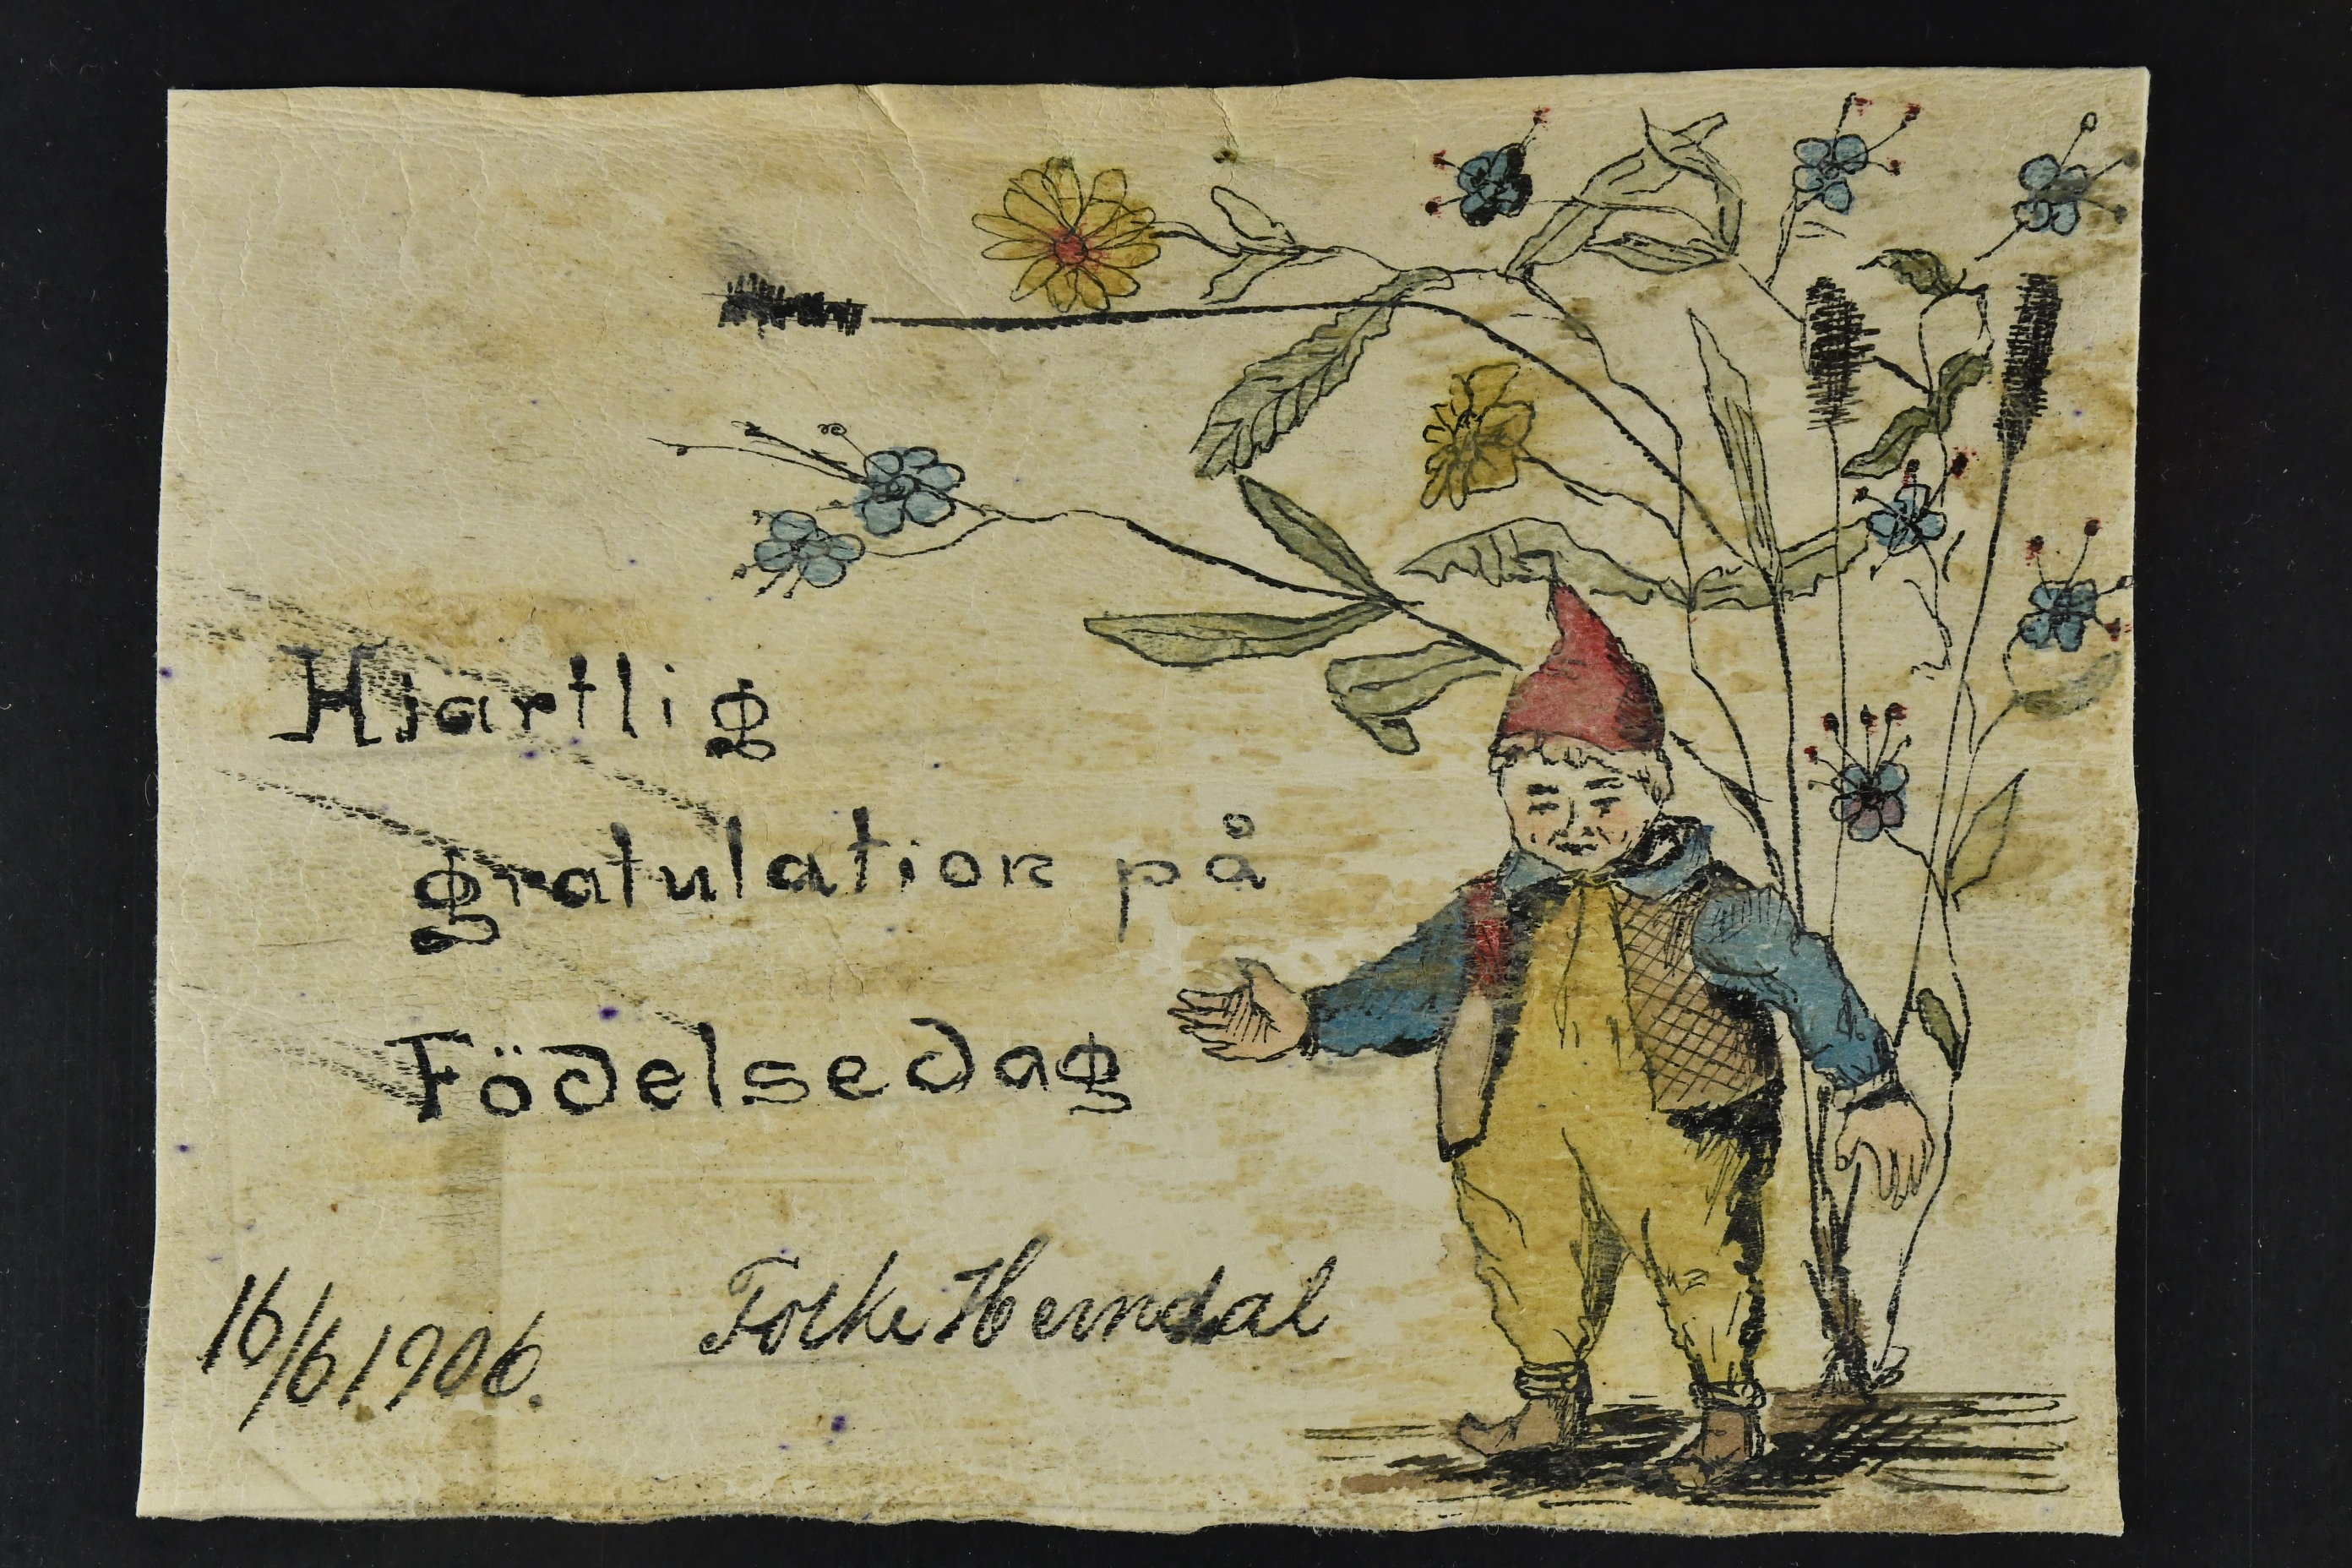 Hjartlig
gratulation på
Födelsedag
16/6 1906. Folke Herndal